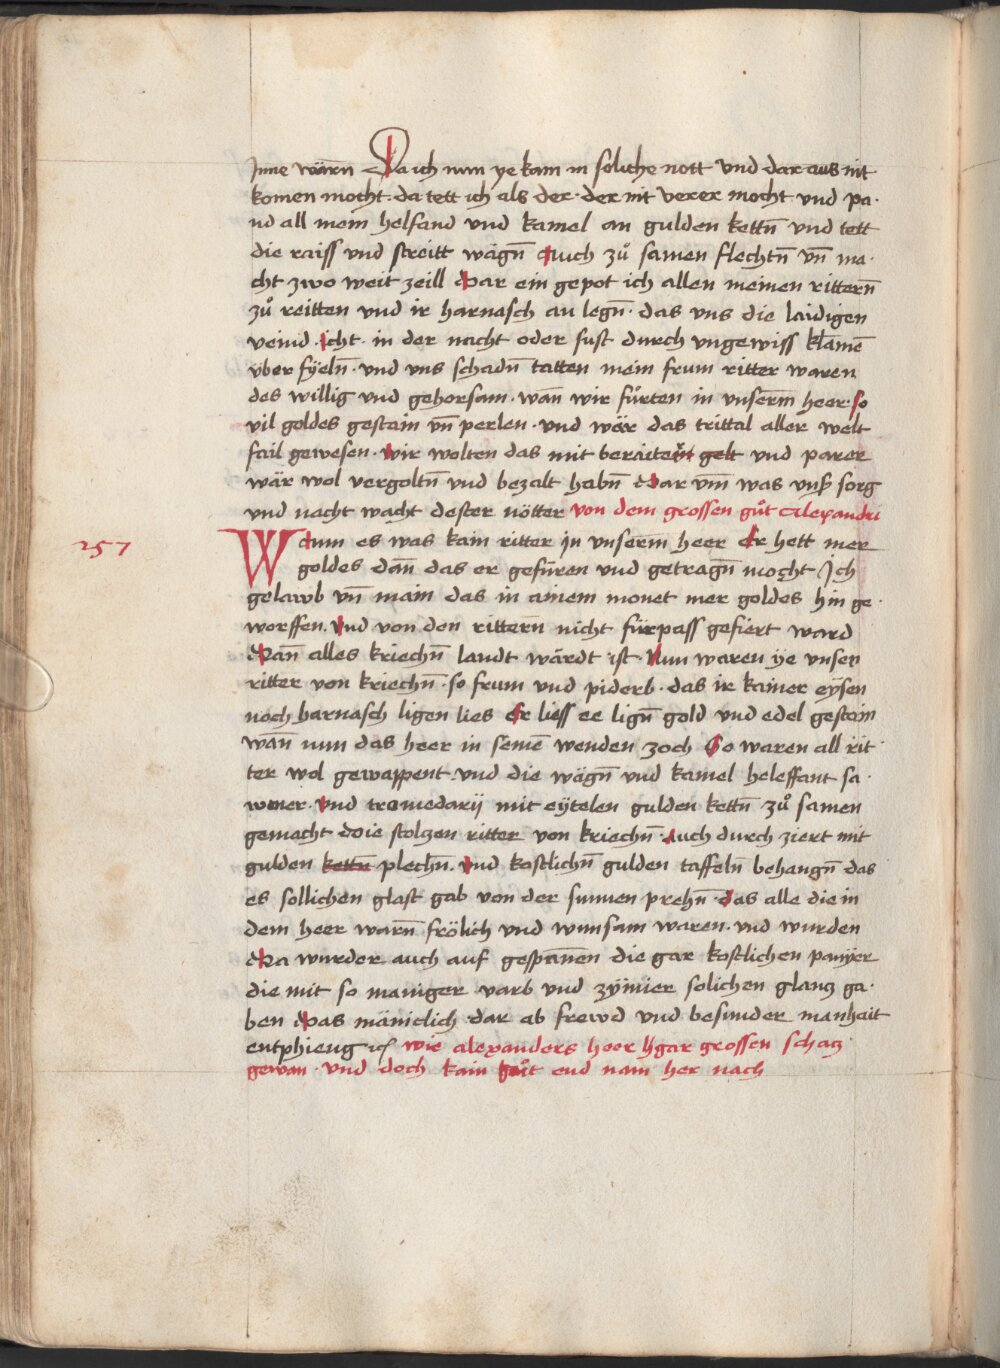 Jnne wärn Da ich nun ye kam in soliche nott vnd dar aus nit
komen mocht · da tett ich als der · der nit verer mocht vnd pa·
nd all mein helfand vnd kamel an gulden kettn̄ vnd tett
die raiss vnd streitt wägn̄ Auch zů samen flechtn̄ vn̄ ma·
cht zwo weit zeill Dar ein gepot ich allen meinen rittern̄
zů reitten vnd ir harnasch an legn̄ · das vns die laidigen
veind · icht · in der nacht oder sust durch vngewiss
vber fyeln̄ · vnd vns schadn̄ tatten mein frum ritter waren
des willig vnd gehorsam · wan̄ wir fürten in vnserm̄ heer · so
vil goldes gestain vn̄ perlen · vnd wär das trittal aller welt
fail gewesen · wir wolten das mit beraitem gelt vnd parer
wär wol vergoltn̄ vnd bezalt habn̄ Dar vm̄ was vnser sorg
vnd nacht wacht dester nötter von dem grossen gůt Alexandri
257
Wann es was kain ritter jn vnserm̄ heer Er hett mer
goldes dan̄ das er gefüren vnd getragn̄ mocht Jch
gelawb vn̄ main das in ainem monet mer goldes hin ge·
worffen · vnd von den rittern̄ nicht fürpass gefiert ward
Dan̄ alles kriechn̄ landt wärdt ist · Nun waren ye vnser
ritter von kriechn̄ · so frum vnd piderb · das ir kainer eysen
noch harnasch ligen lies Er liess ee lign̄ gold vnd edel gestain
wan̄ nun das heer in seinē wenden zoch So waren all rit
ter wol gewappent · vnd die wägn̄ vnd kamel heleffant sa·
wmer · vnd tromedarij mit eytelen gulden kettn̄ zů samen
gemacht doie stolzen ritter von kriechn̄ · auch durch ziert mit
gulden kettn̄ plechn̄ · vnd kostlichn̄ gulden taffeln̄ behangn̄ das
es sollichen glast gab von der sunnen prehn̄ · das alle die in
dem heer warn̄ frölich vnd wunsam waren · vnd wurden
Da wurder auch auf gespannen die gar kostlichen panyer
die mit so maniger varb vnd zymier solichen glanz ga·
ben Das mäniclich dar ab frewd vnd besunder manhait
entphieng wie alexanders heer gar grossen schaz
gewan · vnd doch kain gůt end nam her nach